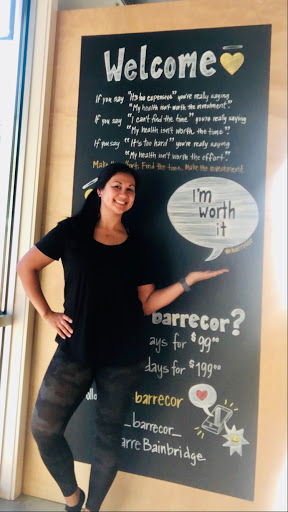 Welcome
If you say "It's too expensive" you're really saying
"My health isn't worth the investment."
If you say "I can't find the time" you're really saying
"My health isn't worth the time"
If you say "It's too hard" you're really saying
"My health isn't worth the effort."
Make Find the time. Make the investment.
I'm
worth
it
barrecor?
ays for $99⁰⁰
days for $199⁰⁰
barrecor
_barrecor_
arreBainbridge